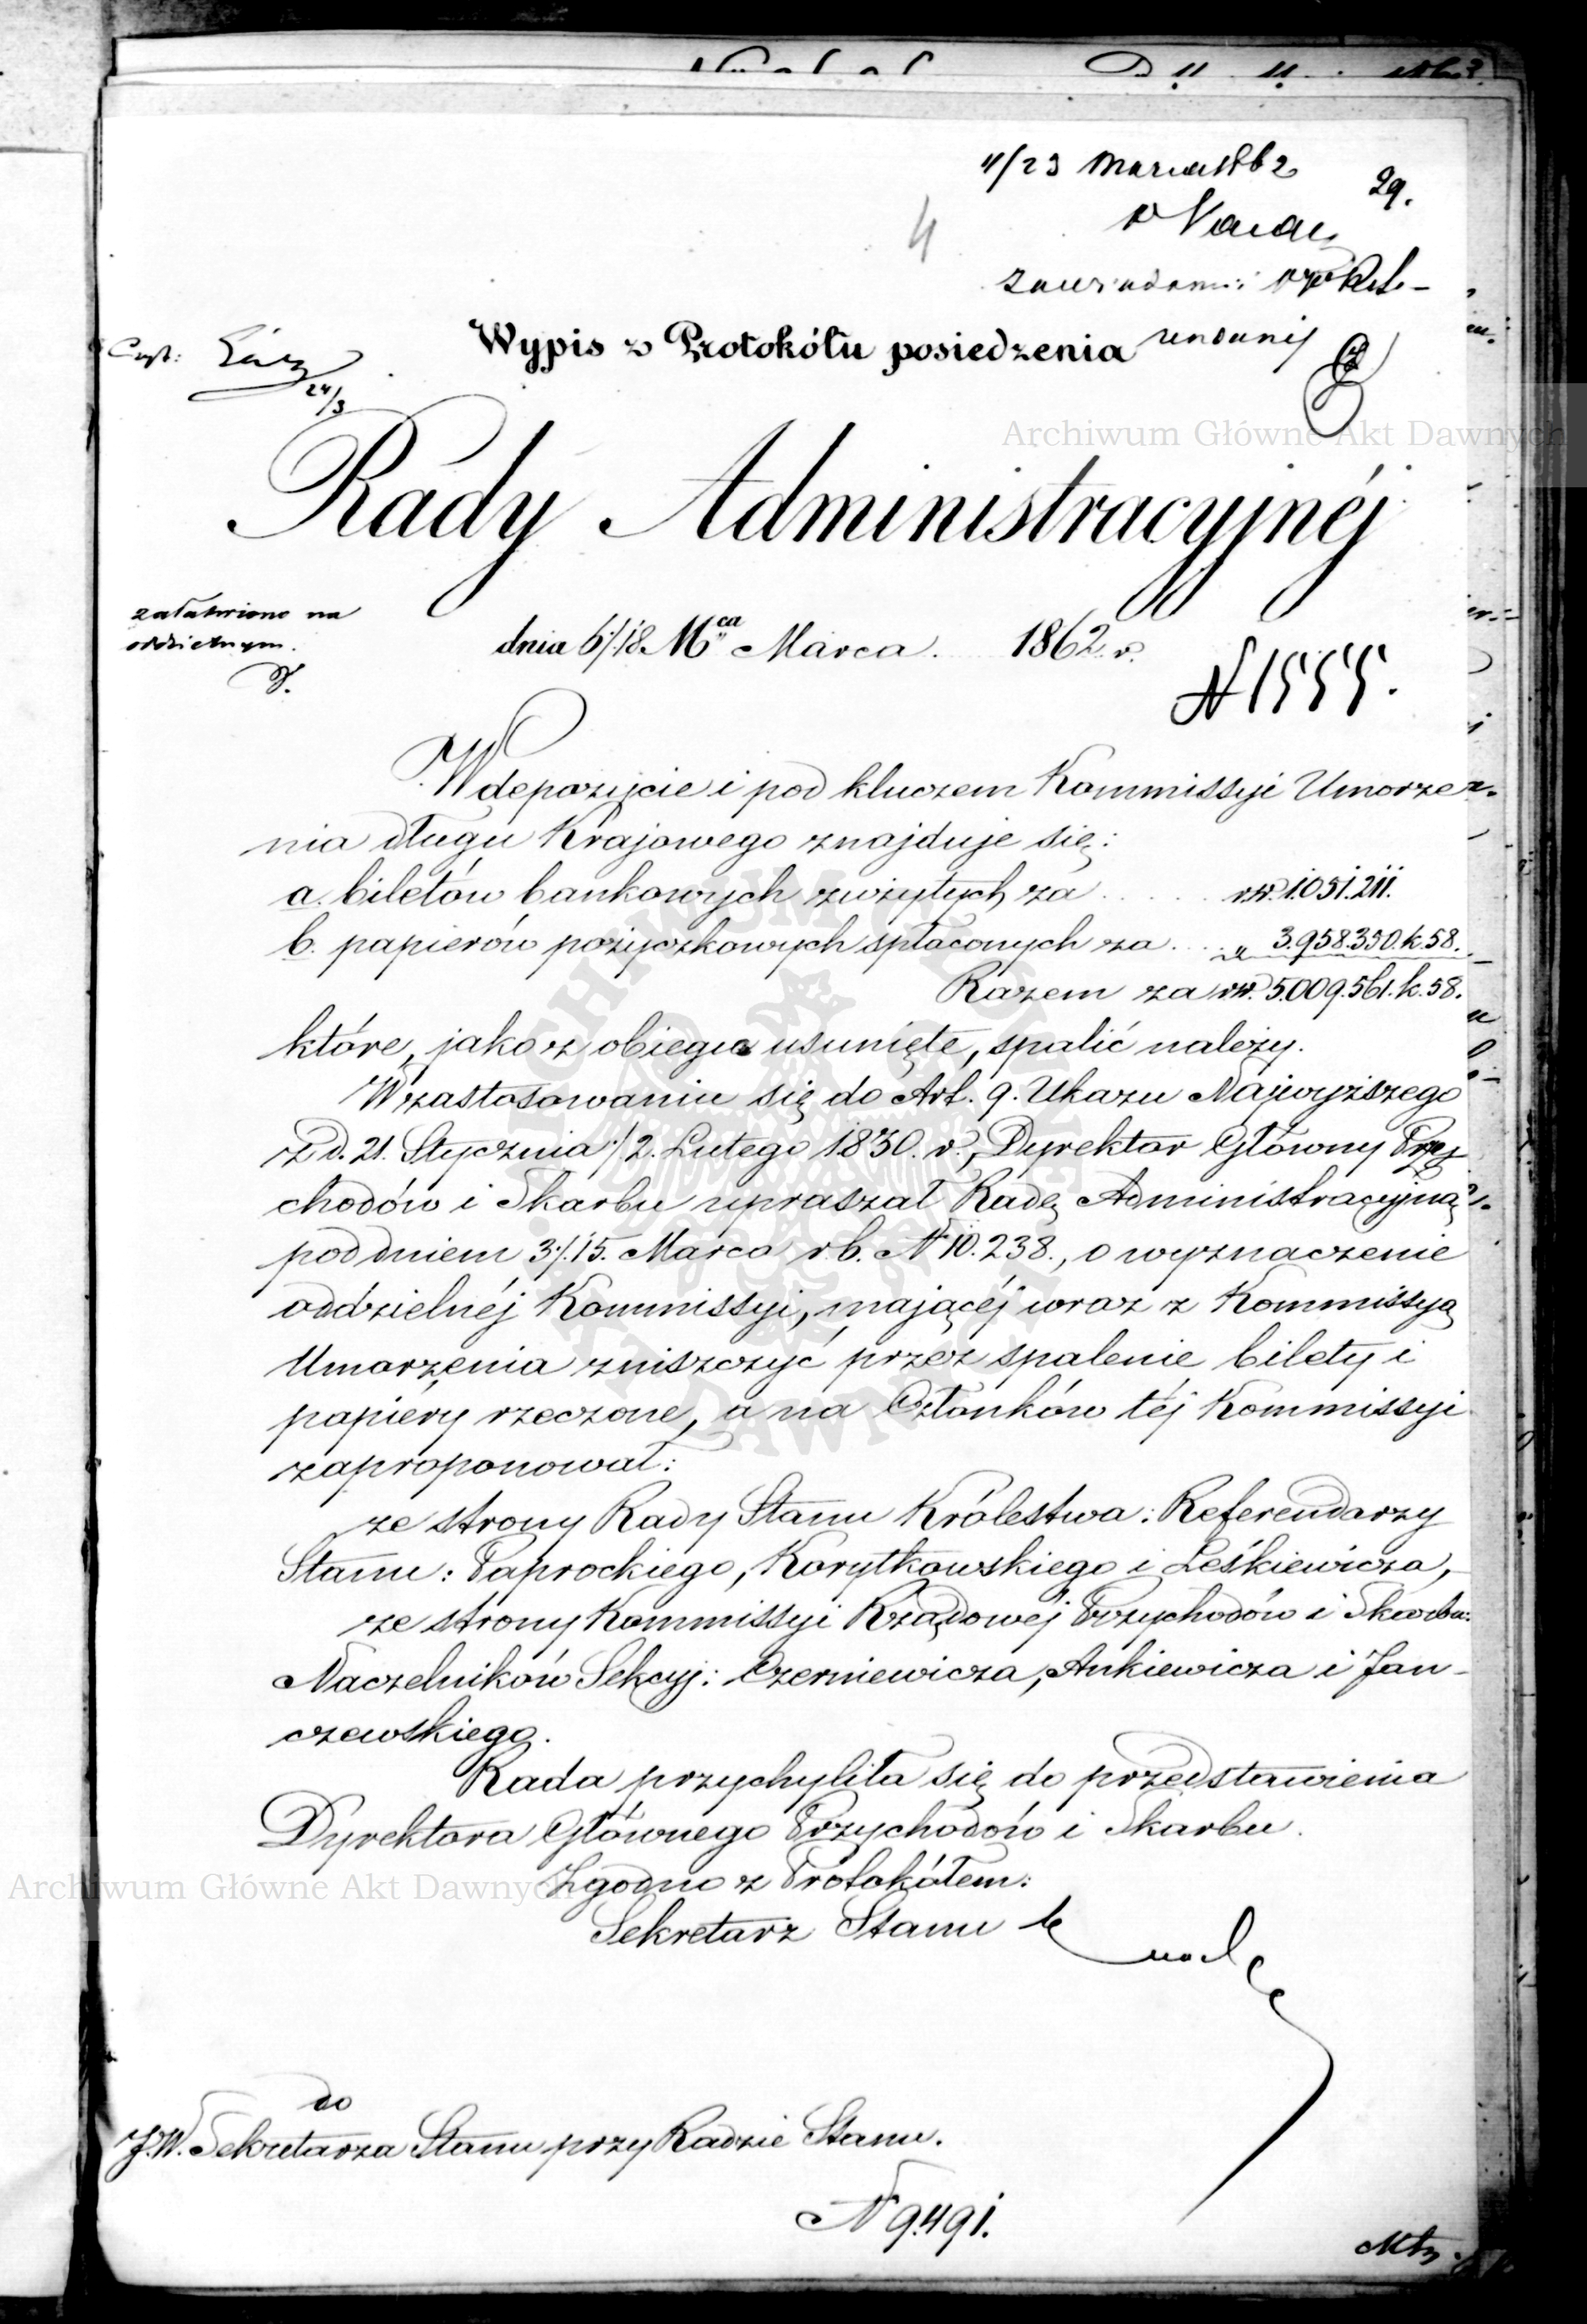 11/23 Marca 1862
29.
4
Wypis z Protokółu posiedzenia
24/3
Rady Administracyjnéj
załatwiono na
oddzielnym.
dnia 6/18 Mca Marca 1862 r.
N 1555.
W depozycie i pod kluczem Kommissyi Umorze-
nia długu Krajowego znajduje się:
a. biletów bankowych zużytych za . . . . . rsr. 1.051.211.
b. papierów pożyczkowych spłaconych za . . . „ 3.958.350. k. 58.
Razem za rsr. 5.009.561. k. 58.
które, jako z obiegu usunięte, spalić należy.
W zastosowaniu się do Art. 9. Ukazu Najwyższego
z d. 21. Stycznia / 2. Lutego 1830. r., Dyrektor Główny Przy
chodów i Skarbu upraszał Radę Administracyjną,
pod dniem 3/15. Marca r.b. N 10.238., o wyznaczenie
oddzielnéj Kommissyi, mającéj wraz z Kommissyą
Umorzenia zniszczyć przez spalenie bilety i
papiéry rzeczone, a na Członków téj Kommissyi
zaproponował:
ze strony Rady Stanu Królestwa: Referendarzy
Stanu: Paprockiego, Korytkowskiego i Leśkiewicza,
ze strony Kommissyi Rządowéj Przychodów i Skarbu:
Naczelników Sekcyj: Czerniewicza, Ankiewicza i Jan-
czewskiego.
Rada przychyliła się do przedstawienia
Dyrektora Głównego Przychodów i Skarbu.
Zgodno z Protokółem:
Sekretarz Stanu
do
J.W. Sekretarza Stanu przy Radzie Stanu.
N 9.491.
Archiwum Główne Akt Dawnych
Archiwum Główne Akt Dawnych
ARCHIWUM GŁÓWNE AKT DAWNYCH